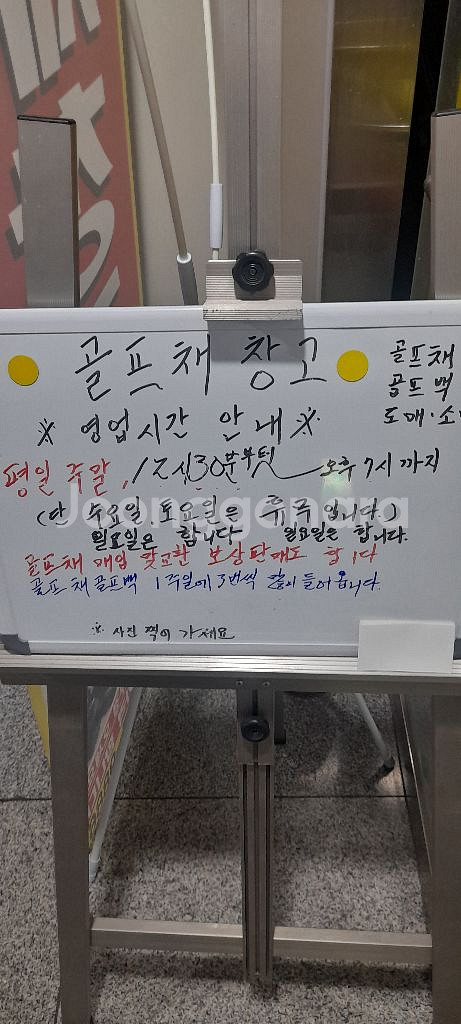 골프채 창고
골프채
골프백
도매·소
※ 영업시간 안내※
평일 주말, 12시30분부터 오후 7시까지
(단 수요일, 토요일은 휴무입니다.)
일요일은 합니다 일요일은 합니다.
골프채 매입 맞교환 보상판매도 합니다
골프채 골프백 1주일에 3번씩 많이 들어옵니다.
※ 사진 찍어 가세요
Joonggonara